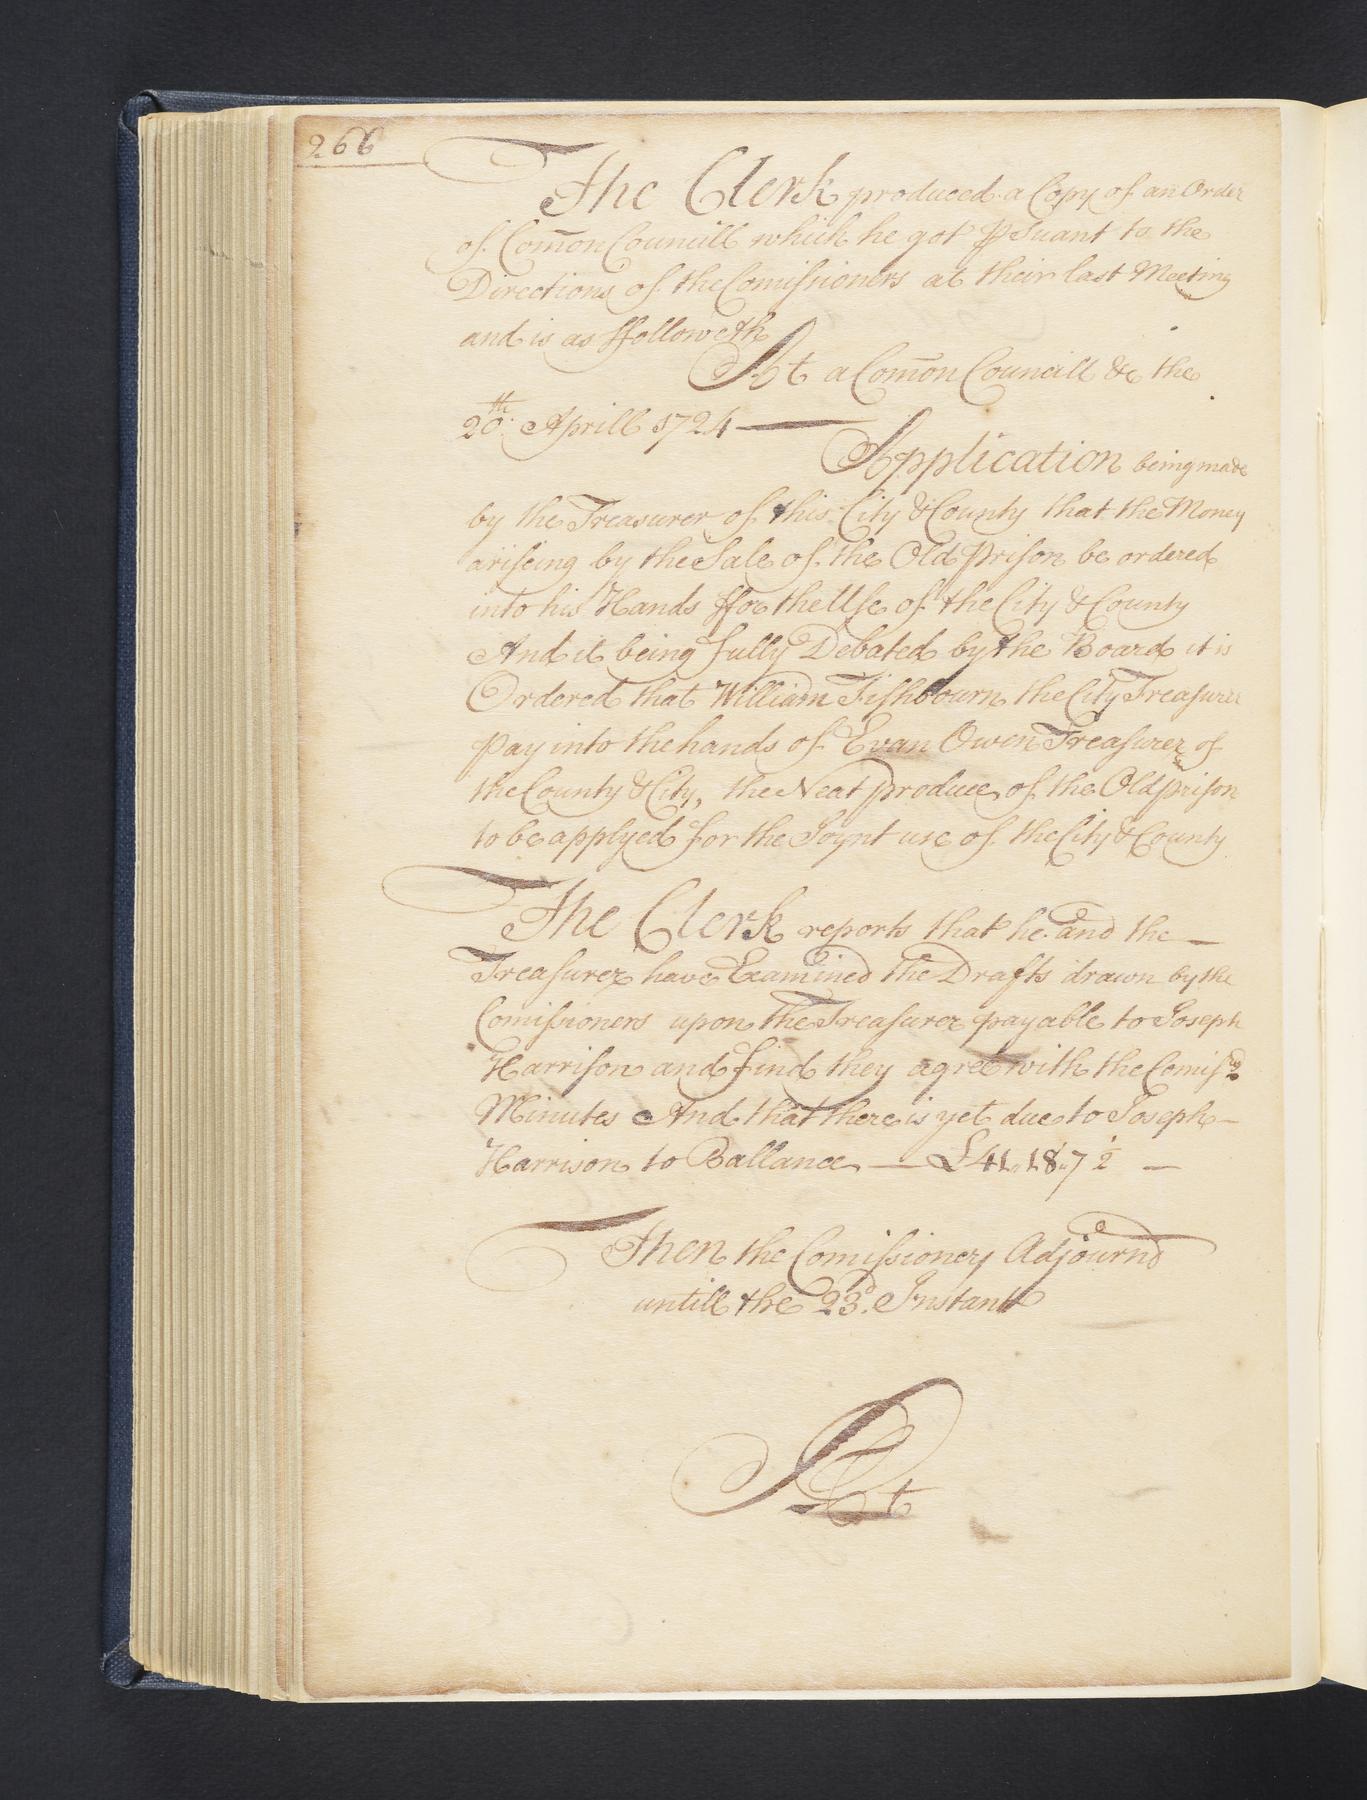 266
The Clerk produced a Copy of an Order
of Com̄on Councill which he got Psuant to the
Directions of the Comissioners at their last Meeting
and is as ffolloweth
At a Com̄on Councill &c the
20th. Aprill 1724
Application being made
by the Treasurer of this City & County that the Money
ariseing by the Sale of the Old Prison be ordered
into his Hands ffor the Use of the City & County
And it being fully Debated by the Board it is
Ordered that William Fishbourn the City Treasurer
Pay into the hands of Evan Owen Treasurer of
the County & City, the Neat produce of the Old prison
to be applyed for the Joynt use of the City & County
The Clerk reports that he and the —
Treasurer have Examined the Drafts drawn by the
Comissioners upon the Treasurer payable to Joseph
Harrison and find they agree with the Comisrs
Minutes And that there is yet due to Joseph —
Harrison to Ballance — £41.18.7 1/2 —
Then the Comissioners Adjournd
untill the 23d. Instant
At